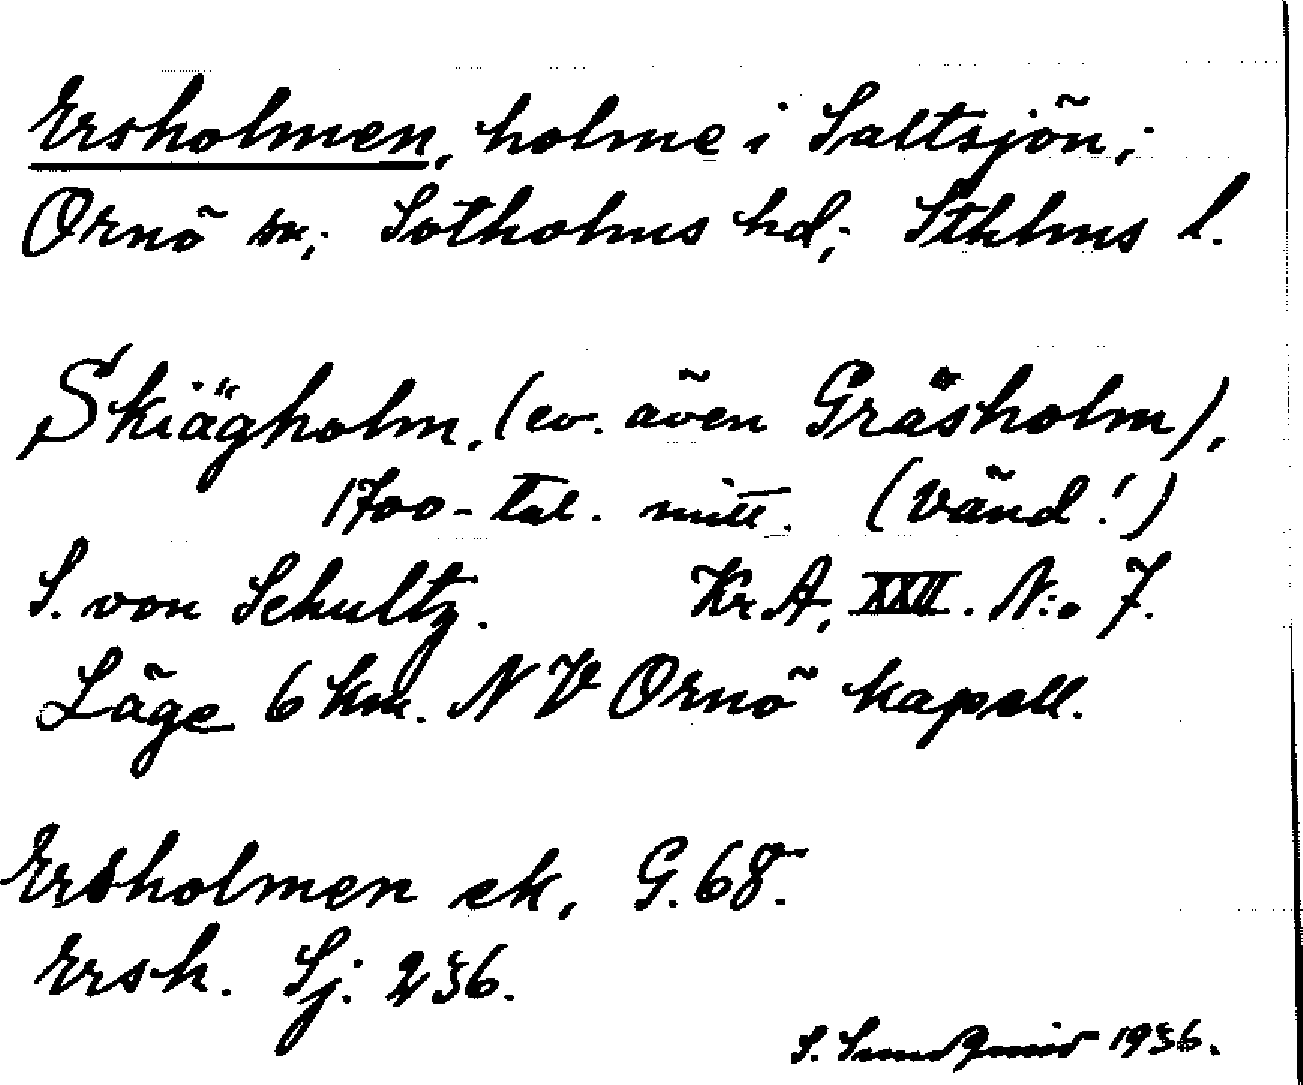 Ersholmen, holme i Saltsjön;
Ornö sn; Sotholms hd; Sthlms l.
Skiägholm, (ev. även Gräsholm),
1700-tal. mitt. (Vänd!)
S. von Schultz. Kr.A, XXII. N:o 7.
Läge 6 km. NV Ornö kapell.
Ersholmen ek, G.68.
Ersh. Sj: 236.
S. 1936.